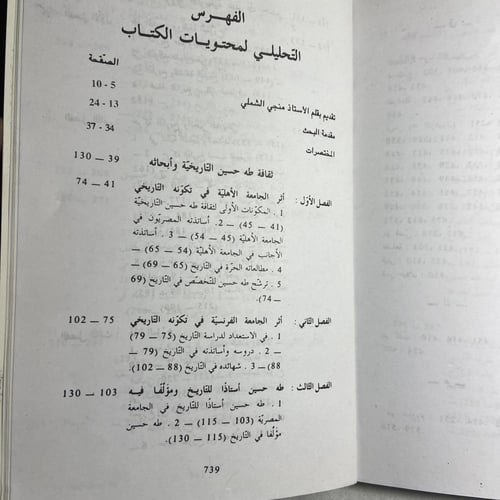 الفهرس
التحليلي لمحتويات الكتاب
الصفحة
تقديم بقلم الأستاذ منجي الشملي 5 - 10
مقدمة البحث 13 - 24
المختصرات 34 - 37
ثقافة طه حسين التاريخيّة وأبحاثه 39 — 130
الفصل الأوّل : أثر الجامعة الأهليّة في تكوّنه التّاريخي 41 — 74
1 . المكوّنات الأولى لثقافة طه حسين التّاريخيّة
(41 — 45) — 2 . أساتذته المصريّون في
الجامعة الأهليّة (45 — 54) — 3 . أساتذته
الأجانب في الجامعة الأهليّة (54 — 65) —
4 . مطالعاته الحرّة في التّاريخ (65 — 69) —
5 . ترشّح طه حسين للتّخصّص في التّاريخ (69
— 74).
الفصل الثاني : أثر الجامعة الفرنسيّة في تكوّنه التّاريخي 75 — 102
1 . في الاستعداد لدراسة التاريخ (75 — 79)
— 2 . دروسه وأساتذته في التّاريخ (79 —
88) — 3 . شهائده في التّاريخ (88 — 102).
الفصل الثالث : طه حسين أستاذا للتّاريخ ومؤلّفا فيه 103 — 130
1 . طه حسين أستاذا للتّاريخ في الجامعة
المصريّة (103 — 115) — 2 . طه حسين
مؤلّفا في التّاريخ (115 — 130).
739